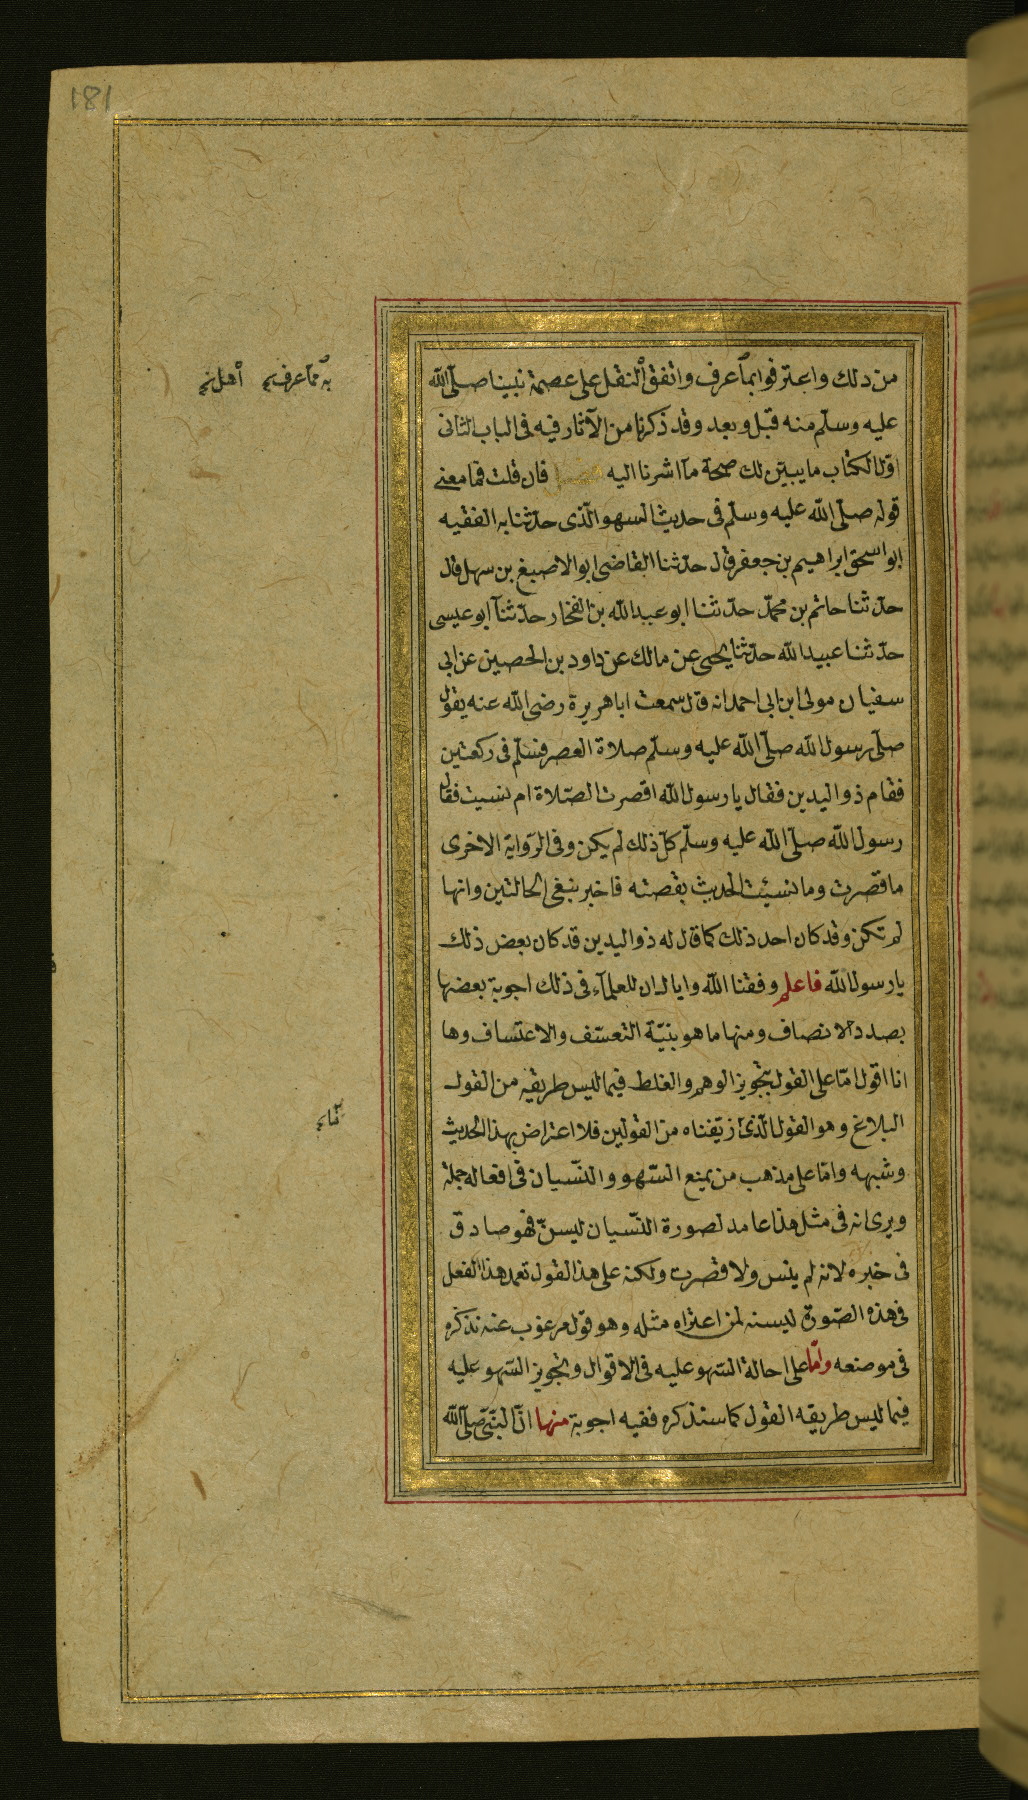 181
من ذلك واعترفوا بما عرف واتفق النقل على عصمة نبينا صلّى الله
عليه وسلّم منه قبل وبعد وقد ذكرنا من الآثار فيه في الباب الثانى
اوّل الكتاب ما يبيّن لك صحة ما اشرنا اليه فان قلت فما معنى
قوله صلّى الله عليه وسلّم في حديث السهو الّذى حدّثنا به الفقيه
ابو اسحق ابراهيم بن جعفر قال حدّثنا القاضى ابو الاصبغ بن سهل قال
حدّثنا حاتم بن محمّد حدّثنا ابو عبد الله بن الفخار حدّثنا ابو عيسى
حدّثنا عبيد الله حدّثنا يحيى عن مالك عن داود بن الحصين عن ابى
سفيان مولى ابن ابى احمد انه قال سمعت ابا هريرة رضى الله عنه يقول
صلّى رسول الله صلّى الله عليه وسلّم صلاة العصر فسلّم في ركعتين
فقام ذو اليدين فقال يا رسول الله اقصرت الصّلاة ام نسيت فقال
رسول الله صلّى الله عليه وسلّم كلّ ذلك لم يكن وفي الرّواية الاخرى
ما قصرت وما نسيت الحديث بقصته فاخبر بنفى الحالتين وانها
لم تكن وقد كان احد ذلك كما قال له ذو اليدين قد كان بعض ذلك
يا رسول الله فاعلم وفقنا الله واياك ان للعلماء في ذلك اجوبة بعضها
بصدد الانصاف ومنها ما هو بنيّة التعسّف والاعتساف وها
انا اقول امّا على القول بتجويز الوهم والغلط فيما ليس طريقه من القول
البلاغ وهو القول الّذى زيّفناه من القولين فلا اعتراض بهذا الحديث
وشبهه وامّا على مذهب من يمنع السّهو والنّسيان في افعاله جملة
ويرى انه في مثل هذا عامد لصورة النّسيان ليسنّ فهو صادق
في خبره لانه لم ينس ولا قصرت ولكنه على هذا القول تعمد هذا الفعل
في هذه الصّورة ليسنه لمن اعتراه مثله وهو قول مرغوب عنه نذكره
في موضعه وامّا على احالة السّهو عليه في الاقوال وتجويز السّهو عليه
فيما ليس طريقه القول كما سنذكره ففيه اجوبة منها انّ النّبىّ صلّى الله